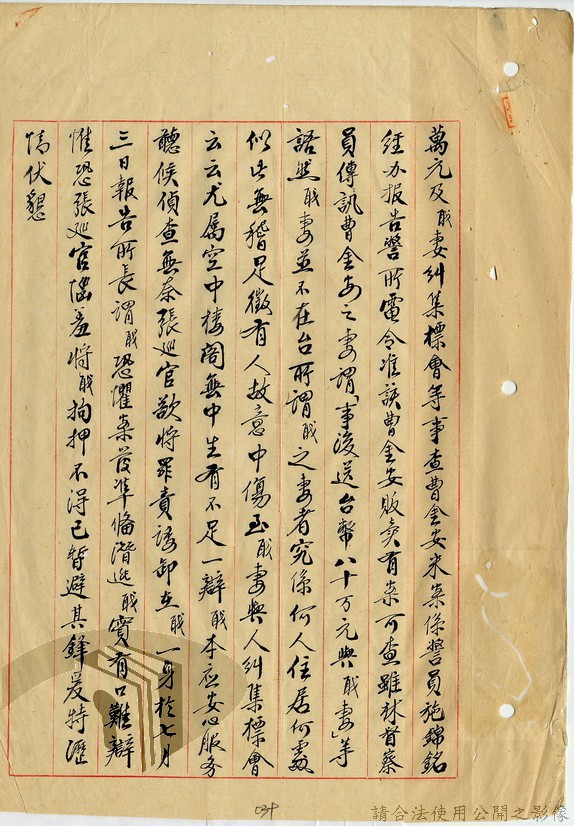 萬元及職妻糾集標會等事查曹金安米案係警員施錦銘
經办报告警所電令准該曹金安販卖有案可查雖林督察
員傳訊曹金安之妻謂「事後送台幣八十万元與職妻」等
語然職妻並不在台所謂職之妻者究係何人住居何處
似此無稽足徵有人故意中傷至職妻與人糾集標會
云云尤属空中楼阁無中生有不足一辯職本应安心服務
聽候偵查無奈張巡官欲將罪責諉卸在職一身於七月
三日報告所長謂職恐懼案發準俻潛逃職實有口難辯
惟恐張巡官惱羞將職拘押不得已暫避其鋒爰特瀝
情伏懇
034
請合法使用公開之影像